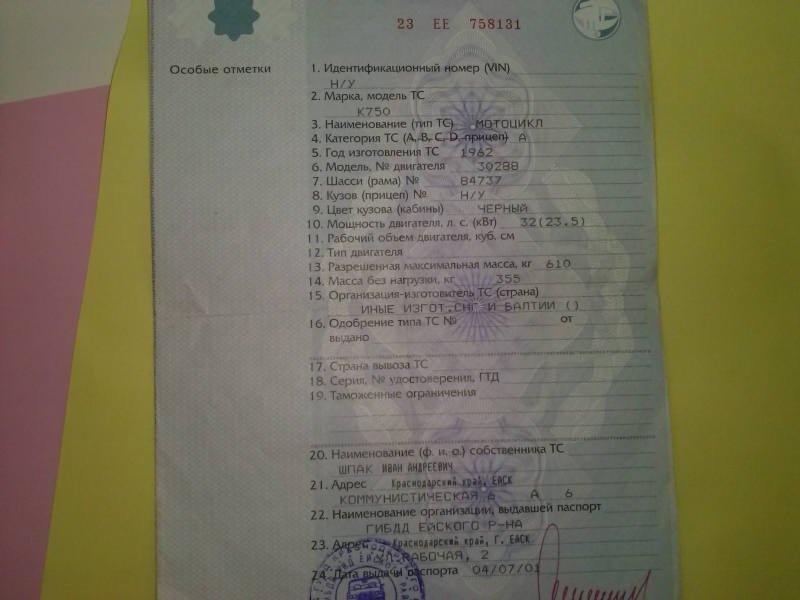 23 ЕЕ 758131
Особые отметки
1. Идентификационный номер (VIN)
Н/У
2. Марка, модель ТС
К750
3. Наименование (тип ТС) МОТОЦИКЛ
4. Категория ТС (A, B, C, D, прицеп) А
5. Год изготовления ТС 1962
6. Модель, № двигателя 30288
7. Шасси (рама) № 84737
8. Кузов (прицеп) № Н/У
9. Цвет кузова (кабины) ЧЕРНЫЙ
10. Мощность двигателя, л. с. (кВт) 32(23.5)
11. Рабочий объем двигателя, куб. см
12. Тип двигателя
13. Разрешенная максимальная масса, кг 610
14. Масса без нагрузки, кг 355
15. Организация-изготовитель ТС (страна)
ИНЫЕ ИЗГОТ.СНГ И БАЛТИИ ()
16. Одобрение типа ТС № от
выдано
17. Страна вывоза ТС
18. Серия, № удостоверения, ГТД
19. Таможенные ограничения
20. Наименование (ф. и. о.) собственника ТС
ШПАК ИВАН АНДРЕЕВИЧ
21. Адрес Краснодарский край, ЕЙСК
КОММУНИСТИЧЕСКАЯ 6 А 6
22. Наименование организации, выдавшей паспорт
ГИБДД ЕЙСКОГО Р-НА
23. Адрес Краснодарский край, Г. ЕЙСК
УЛ.РАБОЧАЯ, 2
24. Дата выдачи паспорта 04/07/01